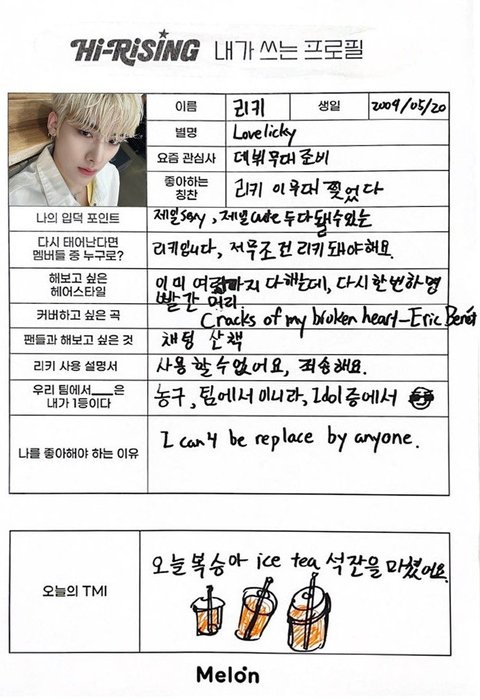 Hi-RiSiNG 내가 쓰는 프로필
이름 리키 생일 2004/05/20
별명 Lovelicky
요즘 관심사 데뷔무대 준비
좋아하는 칭찬 리키 이 무대 찢었다
나의 입덕 포인트 제일 sexy, 제일 cute 두 다 될 수 있는
다시 태어난다면 멤버들 중 누구로? 리키입니다, 저 무조건 리키 돼야 해요.
해보고 싶은 헤어스타일 이미 여러가지 다 해봤는데, 다시 한 번 하면 빨간 머리
커버하고 싶은 곡 Cracks of my broken heart - Eric Benét
팬들과 해보고 싶은 것 채팅 산책
리키 사용 설명서 사용할 수 없어요, 죄송해요.
우리 팀에서___은 내가 1등이다 농구, 팀에서 아니라, Idol 중에서
나를 좋아해야 하는 이유 I can't be replace by anyone.
오늘의 TMI 오늘 복숭아 ice tea 석 잔을 마셨어요.
Melon